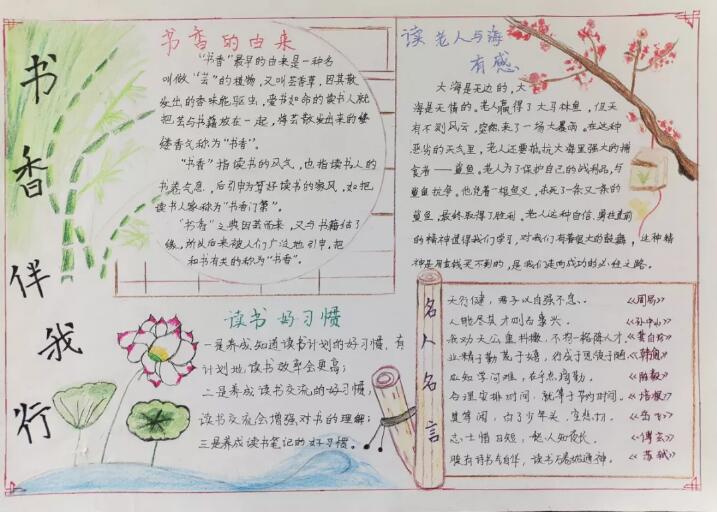 书香伴我行
书香的由来
"书香"最早的由来是一种名
叫做"芸"的植物，又叫芸香草，因其散
发出的香味能驱虫，爱书如命的读书人就
把芸与书籍放在一起，将芸散发出来的缕
缕香气称为"书香"。
"书香"指读书的风气，也指读书人的
书卷气息，后引申为赞好读书的家风，如把
读书人家称为"书香门第"。
"书香"之典因芸而来，又与书籍结了
缘，所以后来被人们广泛地引申，把
和书有关的称为"书香"。
读老人与海
有感
大海是无边的，大
海是无情的，老人赢得了大马林鱼，但天
有不测风云，突然来了一场大暴雨。在这种
恶劣的天气里，老人还要抵抗大海里强大的捕
食者——鲨鱼。老人为了保护自己的战利品，与
鲨鱼抗争。他凭着一根鱼叉，杀死了一条又一条的
鲨鱼，最终取得了胜利，老人这种自信、勇往直前
的精神值得我们学习，对我们有着很大的鼓舞，这种精
神是用金钱买不到的，是我们走向成功的必经之路。
读书好习惯
一是养成知道读书计划的好习惯，有
计划地读书效率会更高；
二是养成读书交流的好习惯，
读书交流会增强对书的理解；
三是养成读书笔记的好习惯。
名人名言
天行健，君子以自强不息。《周易》
人能尽其才则百事兴。《孙中山》
我劝天公重抖擞，不拘一格降人才。《龚自珍》
业精于勤荒于嬉，行成于思毁于随《韩愈》
应知学问难，在乎点滴勤。《陈毅》
合理安排时间，就等于节约时间。《培根》
莫等闲，白了少年头，空悲切。《岳飞》
志士惜日短，愁人知夜长。《傅玄》
腹有诗书气自华，读书万卷始通神。《苏轼》